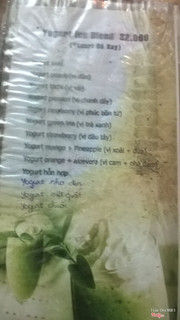 Yogurt Ice Blend 22.000
(Yaourt Đá Xay)
Yogurt
Yogurt (vị dâu)
Yogurt (vị vải)
Yogurt passion (vị chanh dây)
Yogurt (vị phúc bồn tử)
Yogurt green tea (vị trà xanh)
Yogurt strawberry (vị dâu tây)
Yogurt mango + Pineapple (vị xoài + dứa)
Yogurt orange + aloevera (vị cam + nha đam)
Yogurt hỗn hợp
Yogurt nho đen
Yogurt việt quất
Yogurt chuối